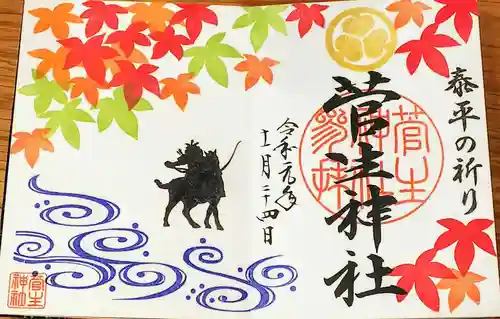 泰平の祈り
菅生神社
菅生
神社
令和元年
十一月二十四日
菅生
神社